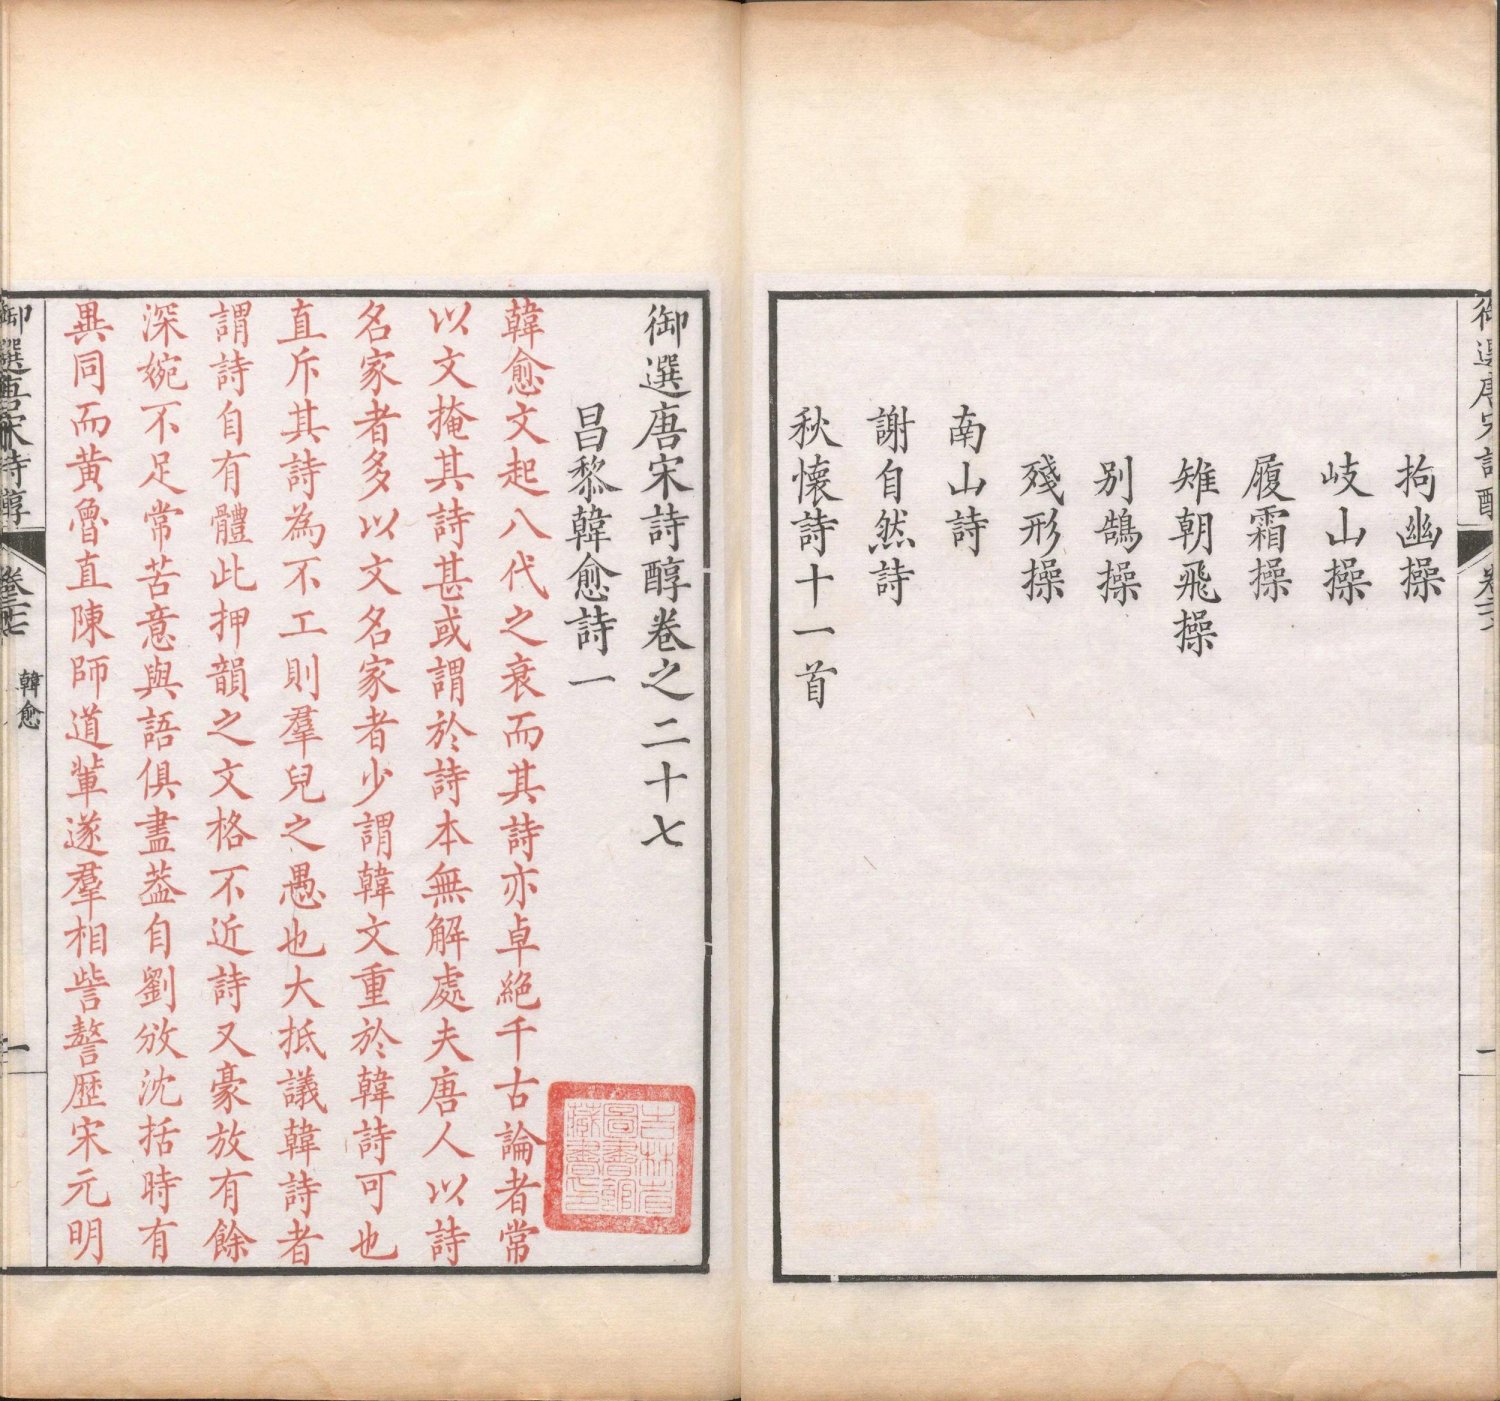 御選唐宋詩醇
拘幽操
岐山操
履霜操
雉朝飛操
別鵠操
殘形操
南山詩
謝自然詩
秋懷詩十一首
御選唐宋詩醇卷之二十七
昌黎韓愈詩一
韓愈文起八代之衰而其詩亦卓絕千古論者常
以文掩其詩甚或謂於詩本無解處夫唐人以詩
名家者多以文名家者少謂韓文重於韓詩可也
直斥其詩為不工則羣兒之愚也大抵議韓詩者
謂詩自有體此押韻之文格不近詩又豪放有餘
深婉不足常苦意與語俱盡葢自劉攽沈括時有
異同而黃魯直陳師道輩遂羣相訾謷歷宋元明
御選唐宋詩醇
卷二十七
韓愈
一
吉林省
圖書館
藏書印